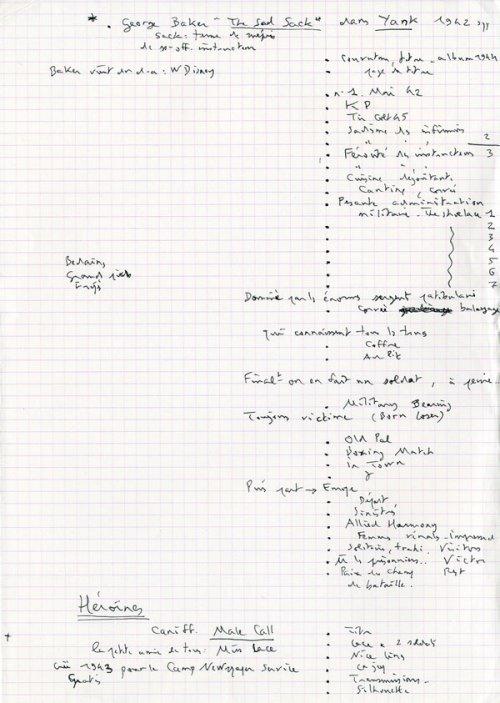 * . George Baker "The Sad Sack" dans Yank 1942
sack : terme de mépris
de ss-off. instruction
. couverture, titre - album 1944
page de titre
Baker vient du d-a : W Disney
. n° 1. Mai 42
. KP
. Tir Colt 45
. Sadisme des infirmiers
" 2
. Férocité des instructeurs 3
. " "
. Cuisine dégoûtante.
Cantine, corvée
. Pesante administration
militaire. The shoelace 1
. 2
. 3
. 4
. 5
. 6
. 7
Bedaine,
Grands pieds
Dominé par les énormes sergent patibulaire
. corvée balayage
qui connaissent tous les trucs
. Coffre
. Arr
Finalt on en fait un soldat, à peine
. Military Bearing
Toujours victime (Born loser)
. Old Pal
. Boxing Match
. In Town
. y
Puis part → Europe
. Départ
. Sinistrés
. Allied Harmony
. Femmes rivales - impressed
. Solitaire, trahi. Visitors
. prisonniers.. Victor
. Paix du champ Rest
de bataille.
Héroïnes
Caniff. Male Call
la petite amie de tous : Miss Lace
Créé 1943 pour le Camp Newspaper Service
Gratis
+
. Titre
. Lace + 2 soldats
. Nice
. Transmissions.
. Silhouette